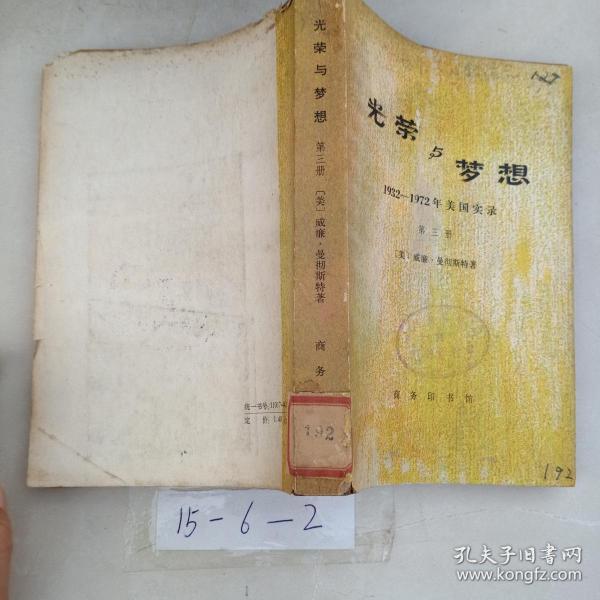 光荣与梦想 第三册 〔美〕威廉·曼彻斯特著
商务
192
统一书号:11017·4
定价:1.4
127
光荣与梦想
1932—1972年美国实录
第三册
〔美〕威廉·曼彻斯特著
商务印书馆
192
15-6-2
孔夫子旧书网
www.kongfz.com